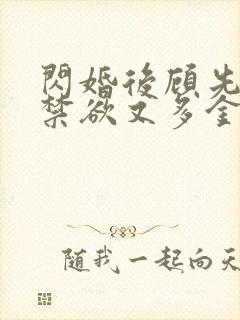 閃婚後顾先
禁欲又多金
随我一起向天